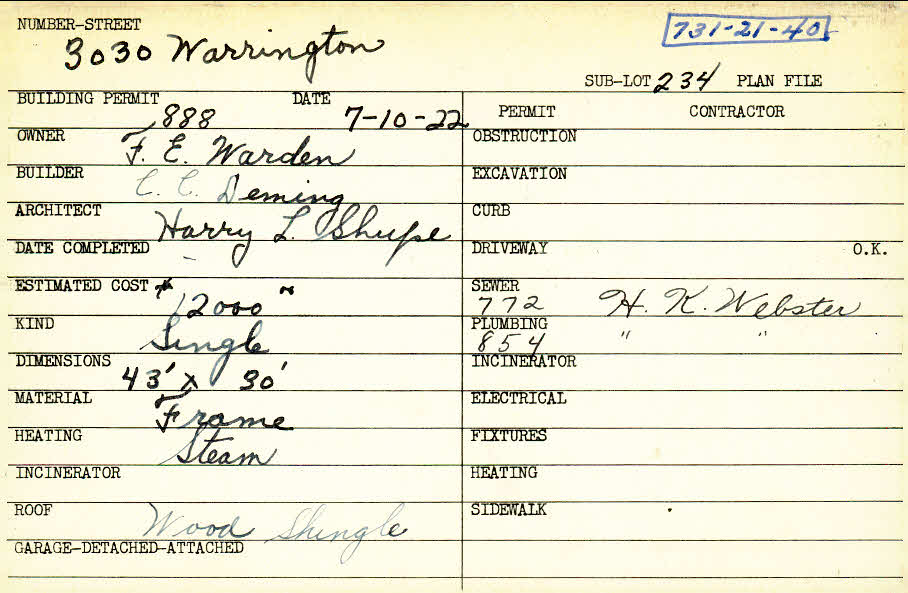 NUMBER-STREET
3030 Warrington
731-21-40
SUB-LOT 234 PLAN FILE
BUILDING PERMIT 888 DATE 7-10-22
OWNER F. E. Warden
BUILDER C. C. Deming
ARCHITECT Harry L. Shupe
DATE COMPLETED
ESTIMATED COST 12000
KIND Single
DIMENSIONS 43' x 30'
MATERIAL Frame
HEATING Steam
INCINERATOR
ROOF Wood Shingle
GARAGE-DETACHED-ATTACHED
PERMIT CONTRACTOR
OBSTRUCTION
EXCAVATION
CURB
DRIVEWAY O.K.
SEWER 772 H. K. Webster
PLUMBING 854 " "
INCINERATOR
ELECTRICAL
FIXTURES
HEATING
SIDEWALK